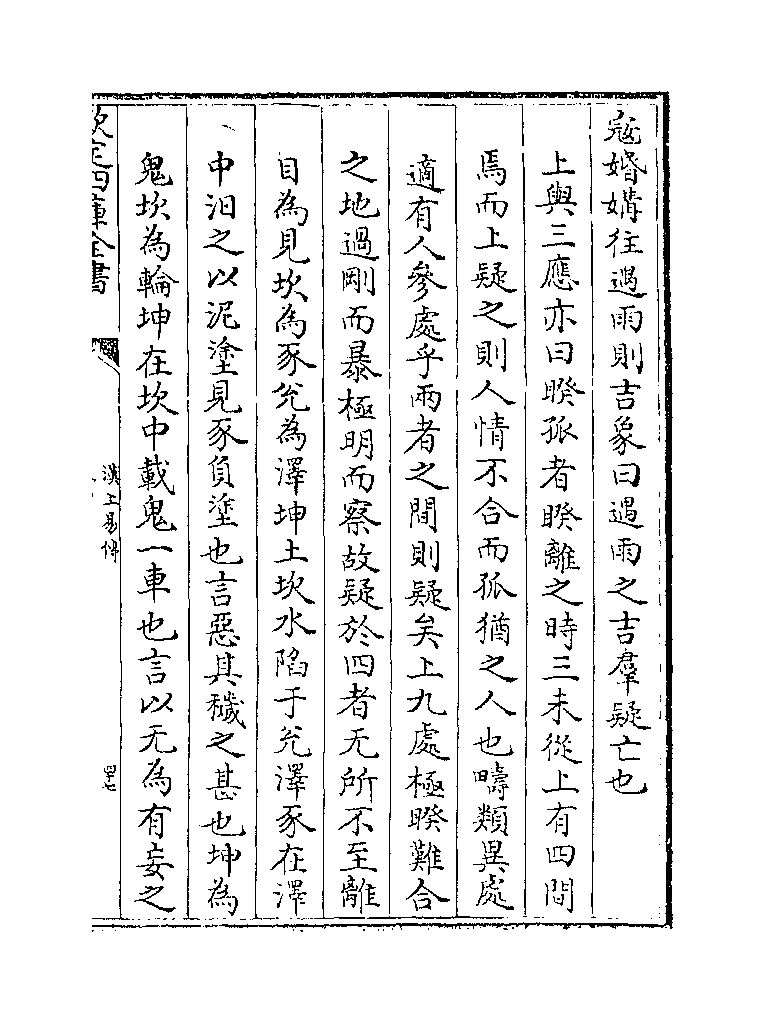 寇婚媾往遇雨則吉象曰遇雨之吉羣疑亡也
上與三應亦曰睽孤者睽離之時三未從上有四間
焉而上疑之則人情不合而孤猶之人也疇類異處
適有人參處乎兩者之間則疑矣上九處極睽難合
之地過剛而暴極明而察故疑於四者无所不至離
目為見坎為豕兊為澤坤土坎水陷于兊澤豕在澤
中汩之以泥塗見豕負塗也言惡其穢之甚也坤為
鬼坎為輪坤在坎中載鬼一車也言以无為有妄之
欽定四庫全書
漢上易傳